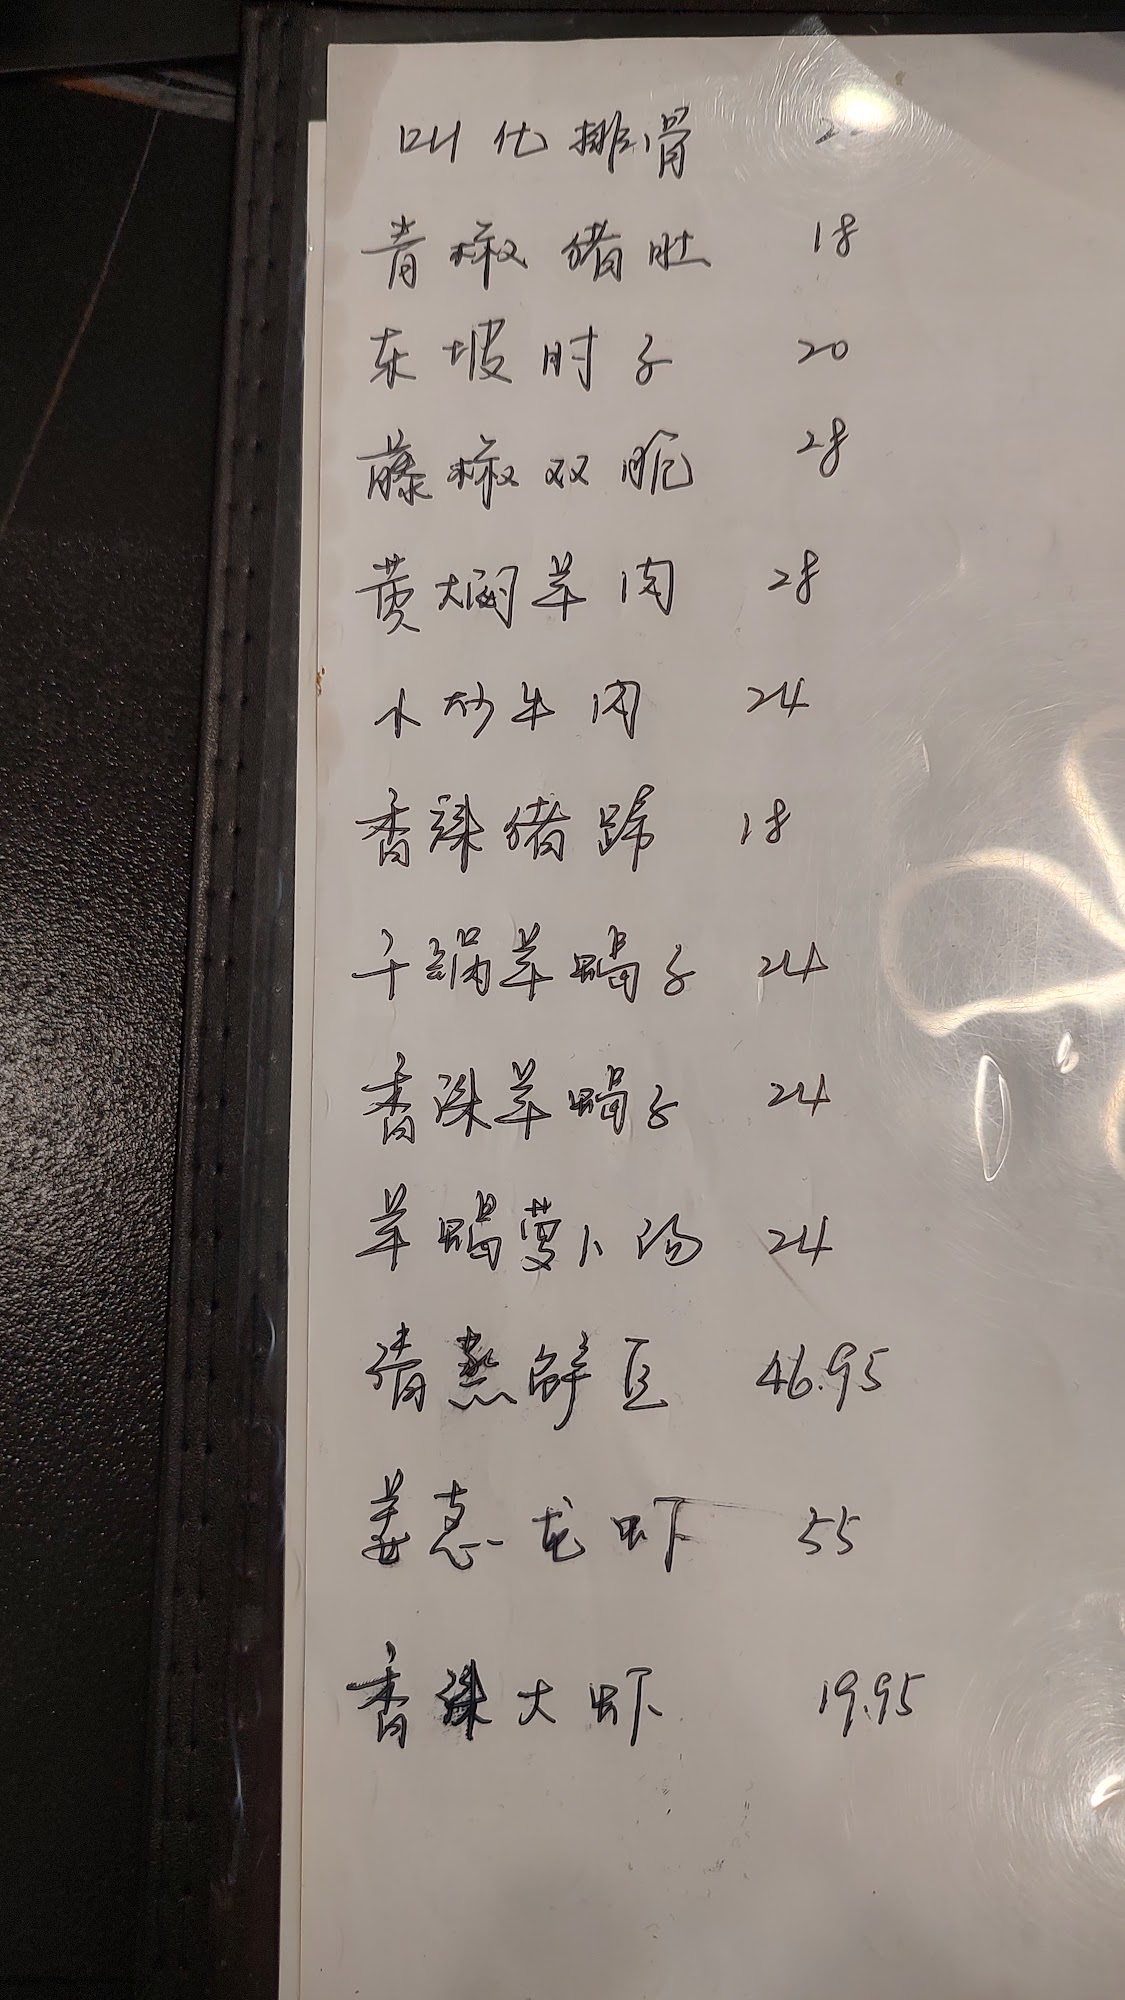 叫化排骨
青椒猪肚 18
东坡肘子 20
藤椒双脆 28
黄焖羊肉 28
小炒牛肉 24
香辣猪蹄 18
干锅羊蝎子 24
香辣羊蝎子 24
羊蝎萝卜汤 24
清蒸 46.95
姜葱龙虾 55
香辣大虾 19.95